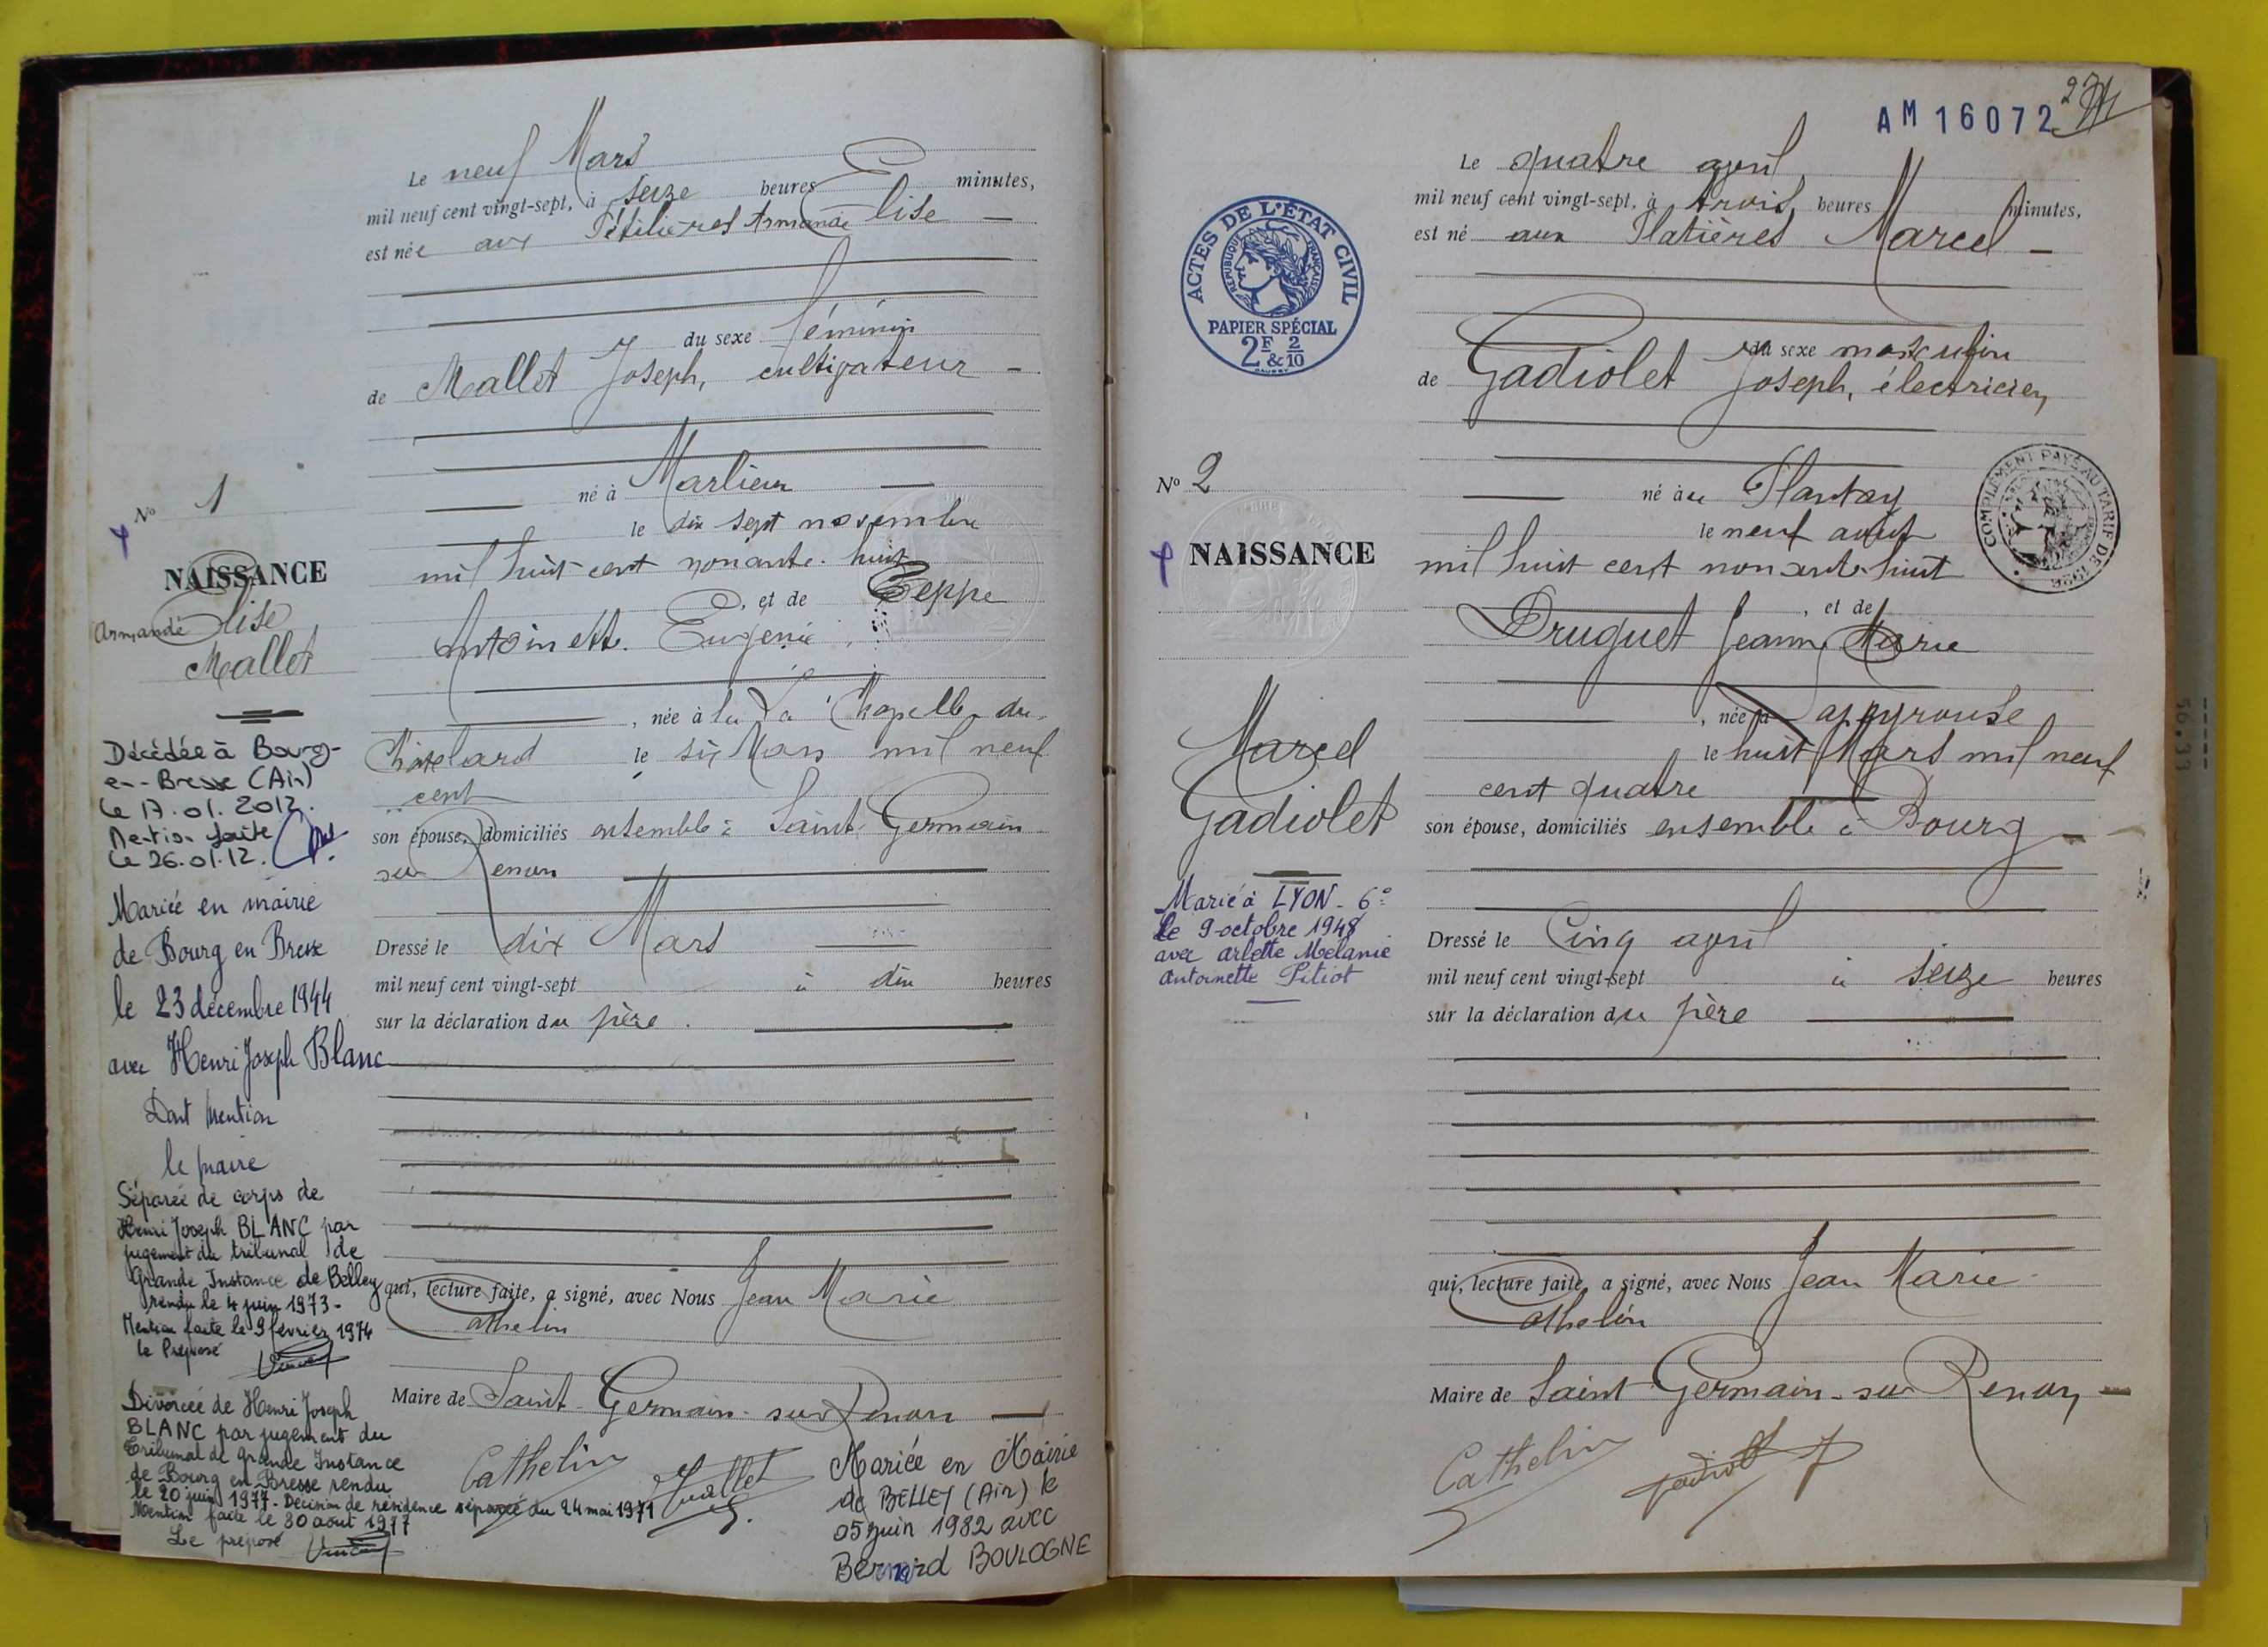 Le neuf Mars
mil neuf cent vingt-sept, à seize heures minutes,
est née aux Armande Elise
du sexe féminin
de Mallet Joseph, cultivateur
né à Marlieux
le dix sept novembre
mil huit cent nonante-huit
, et de Teppe
Antoinette Eugénie
, née à la La Chapelle du
Châtelard le six Mars mil neuf
cent
son épouse, domiciliés ensemble à Saint Germain
sur Renon
Dressé le dix Mars
mil neuf cent vingt-sept à dix heures
sur la déclaration du père.
qui, lecture faite, a signé, avec Nous Jean Marie
Cathelin
Maire de Saint-Germain-sur Renon
Cathelin Mallet
Mariée en Mairie
de BELLEY (Ain) le
05 juin 1982 avec
Bernard BOULOGNE
N° 1
NAISSANCE
Armande Elise
Mallet
Décédée à Bourg-
en-Bresse (Ain)
Le 17.01.2012.
Mention faite
Le 26.01.12.
Mariée en mairie
de Bourg en Bresse
le 23 décembre 1944
avec Henri Joseph Blanc
Dont Mention
le maire
Séparée de corps de
Henri Joseph BLANC par
jugement du tribunal de
Grande Instance de Belley
rendu le 4 juin 1973-
Mention faite le 9 février 1974
le Préposé
Divorcée de Henri Joseph
BLANC par jugement du
Tribunal de Grande Instance
de Bourg en Bresse rendu
le 20 juin 1977. Décision de résidence séparée du 24 mai 1971
Mention faite le 30 août 1977
Le préposé
AM 16072
ACTES DE L'ÉTAT CIVIL
RÉPUBLIQUE FRANÇAISE
PAPIER SPÉCIAL
2F & 2/10
Le quatre avril
mil neuf cent vingt-sept, à trois heures minutes,
est né aux Platières Marcel
du sexe masculin
de Gadiolet Joseph, électricien
né à u Plantay
le neuf août
mil huit cent nonante huit
, et de
Druguet Jeanne Marie
, née à Lapeyrouse
le huit Mars mil neuf
cent quatre
son épouse, domiciliés ensemble à Bourg
Dressé le Cinq avril
mil neuf cent vingt-sept à seize heures
sur la déclaration du père
qui, lecture faite, a signé, avec Nous Jean Marie
Cathelin
Maire de Saint Germain-sur Renon
Cathelin Gadiolet
COMPLÉMENT PAYÉ AU TARIF DE 1926
N° 2
NAISSANCE
Marcel
Gadiolet
Marié à LYON-6e
Le 9 octobre 1948
avec Arlette Mélanie
Antoinette Pitiot